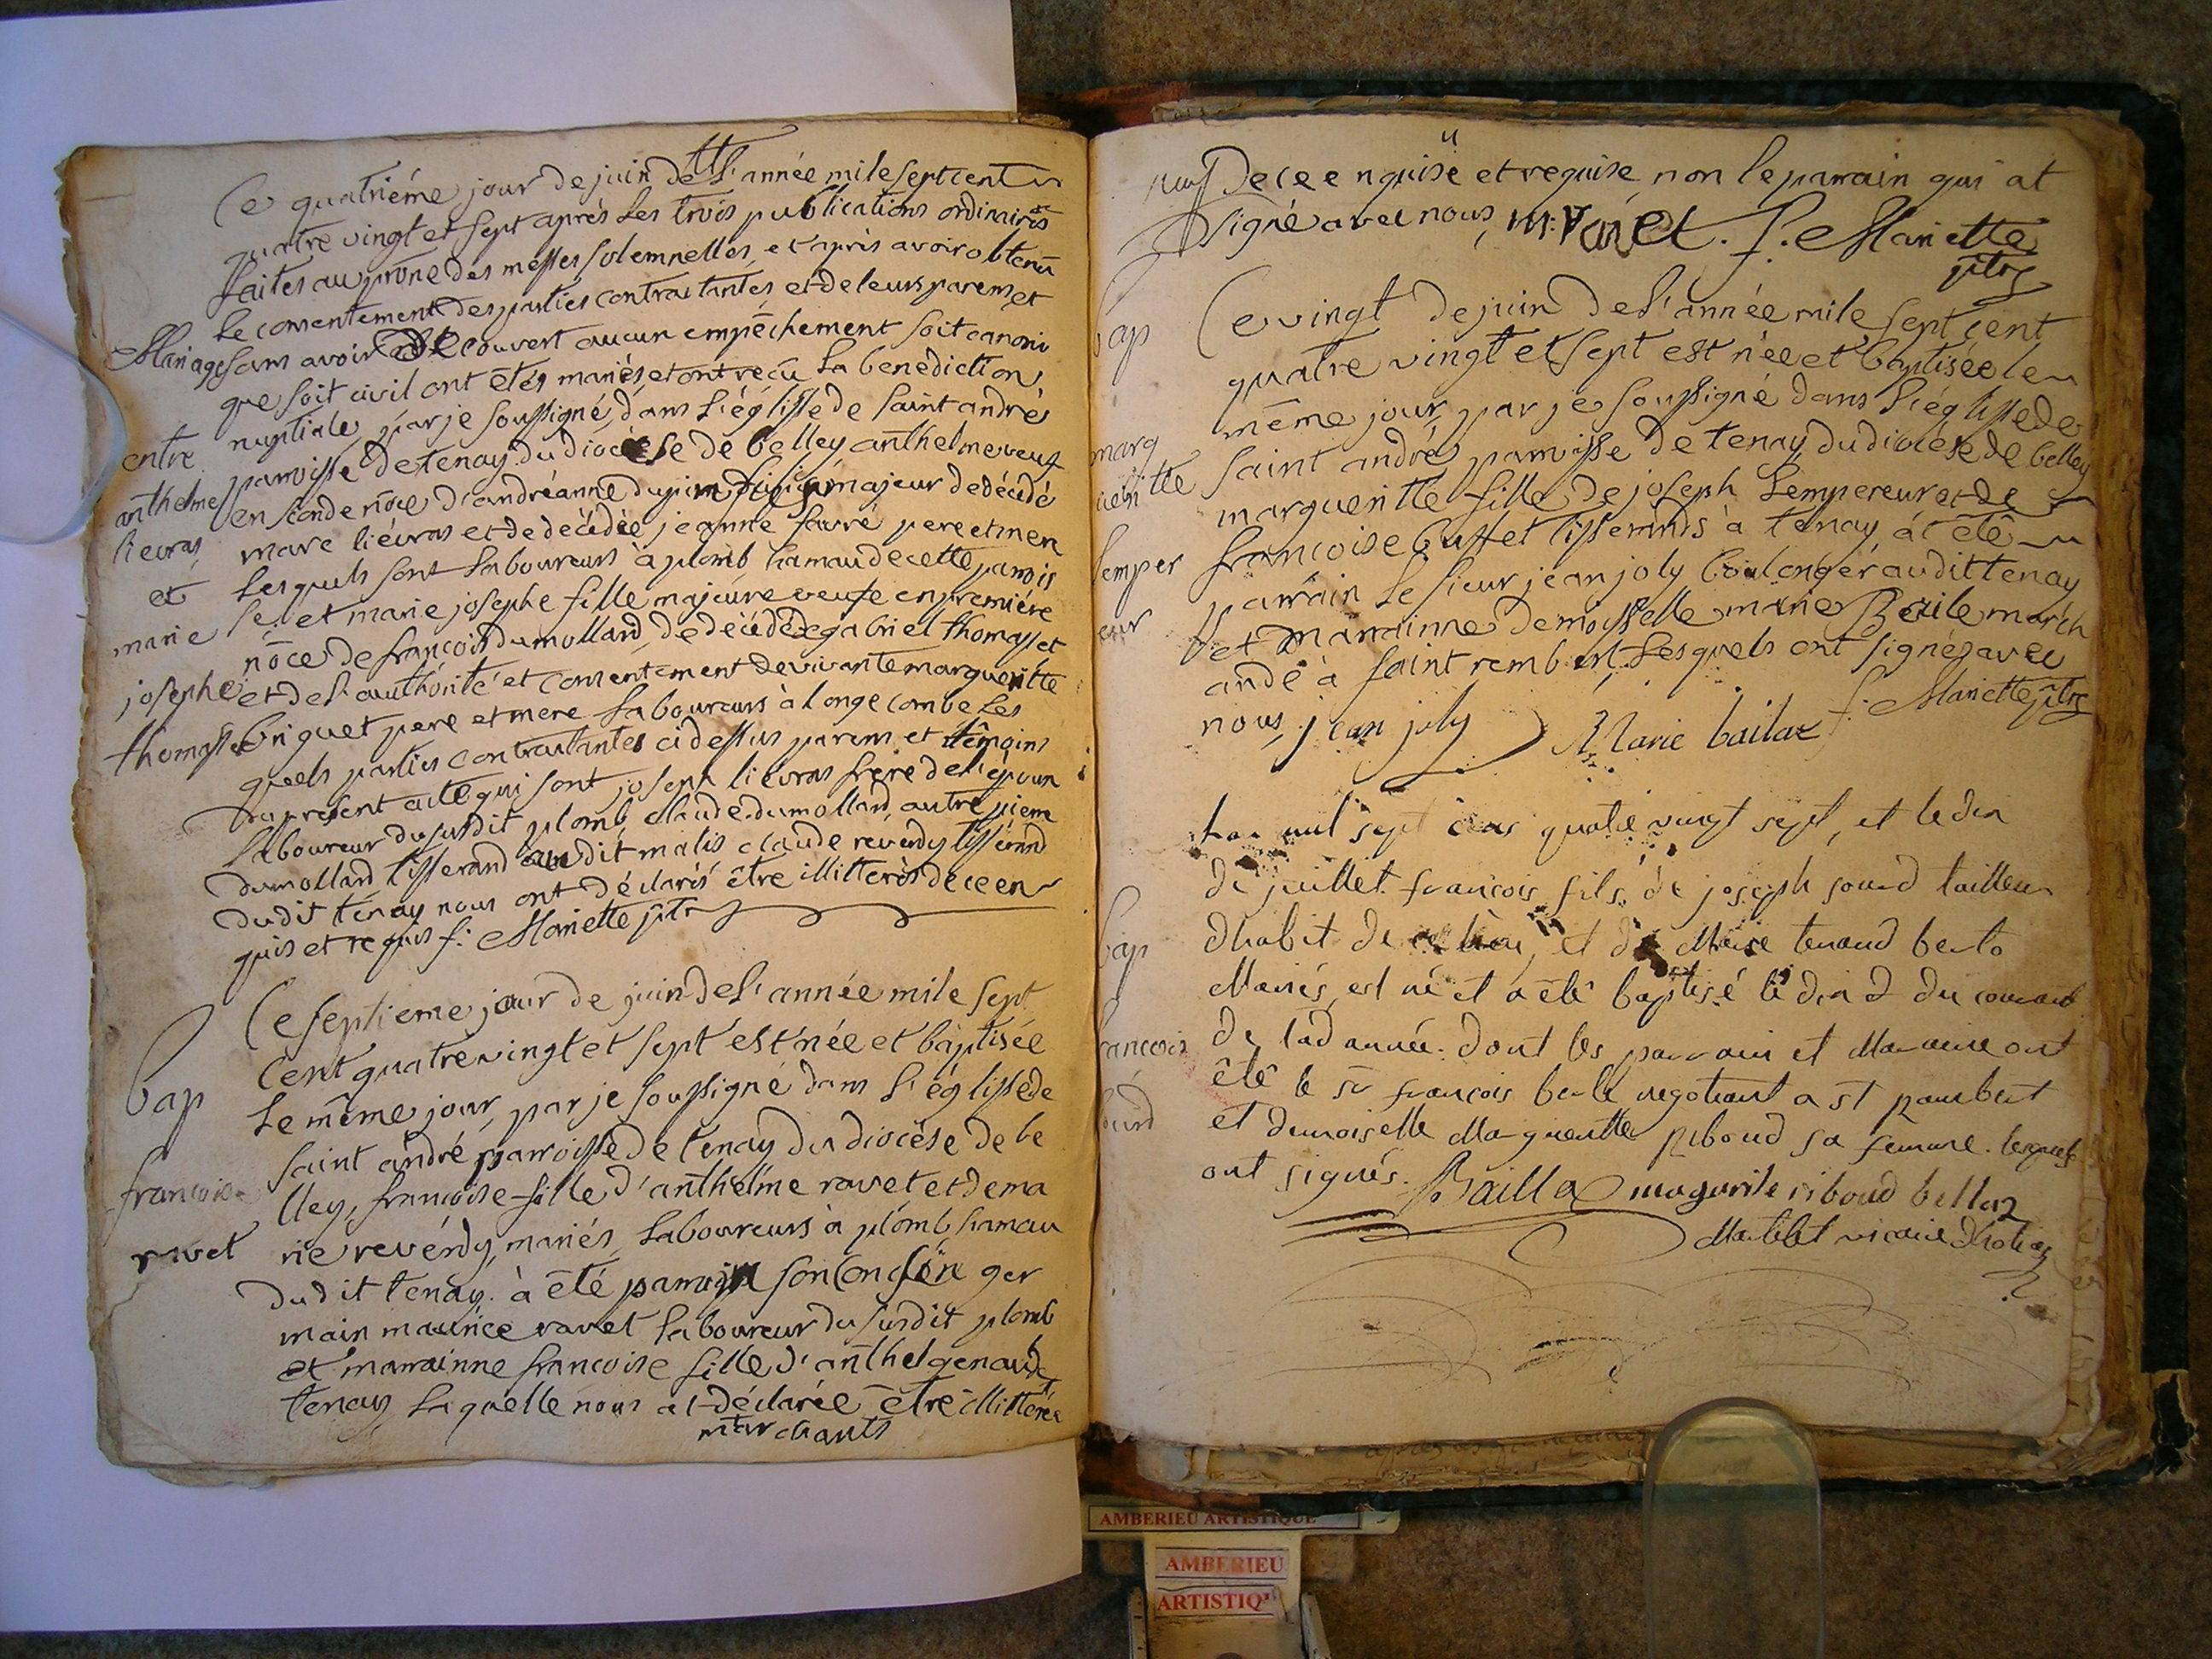 Ce quatriéme jour de juin de l'année mile sept cent
quatre vingt et sept aprés les trois publications ordinaires
faites au prône des messes solemnelles, et après avoir obtenu
le consentement des parties contractantes et de leurs parens, et
Mariage sans avoir découvert aucun empêchement soit canoni
que soit civil ont étés mariés et ont reçu la benediction
entre nuptiale, par je soussigné, dans l'églisse de saint andrés
paroisse de tenay du diocése de belley anthelme veuf
anthelme en seconde nôce d'andréanne dupin majeur de décédé
lievras marc liévras et de décédée jeanne favré pere et mere
et lesquels sont laboureurs à plomb hamau de cette parois
marie se et marie josephe fille majeure veufe en premiére
nôce de francois dumollard, de décédé gabriel thomasset
josephe et de l'authôrité et consentement de vivante margueritte
thomasse briguet pere et mere laboureurs à longe combe les
quels parties contractantes ci dessus parens et têmoins
du present acte qui sont joseph liévras frere de l'époux
laboureur du susdit plomb, claude dumollard, autre pierre
dumollard tisserand audit malis claude reverdy tisserand
dudit tenay nous ont déclarés être illitterés de ce en
quis et requis f: Mariette ptre
Ce septieme jour de juin de l'année mile sept
cent quatre vingt et sept est née et baptisée
bap le même jour, par je soussigné dans l'églisse de
saint andré, parroisse de tenay du diocèse de be
francoise lley, françoise fille d'anthelme ravet et de ma
ravet rie reverdy, mariés, laboureurs à plomb, hamau
dudit tenay. à été parrain son consin ger
main maurice ravet laboureur du susdit plomb
et marrainne francoise fille d'anthel genaud
tenay laquelle nous at déclarée être illitterée
marchants
de ce enquise et requise non le parrain qui at
signé avec nous, m: ravet. f. Mariette
ptre
bap Ce vingt de juin de l'année mile sept cent
quatre vingt et sept est née et baptisée le
même jour, par je soussigné dans l'églisse de
marg saint andré, paroisse de tenay du diocèse de belley
ueritte margueritte fille de joseph lempereur et de
lemper francoise buffet tisserands à tenay, at été
parrain le sieur jean joly boulengér audit tenay
eur et marrainne demoisselle marie Baile march
ande à saint rembert, lesquels ont signés avec
nous, jean joly Marie bailat f. Mariette ptre
Lan mil sept cens quatre vingt sept, et le dix
de juillet françois fils de joseph sourd tailleur
bap dhabit de et de Marie tenand
Mariés, est né et a êtê baptisé le dix du courant
francois de lad année. dont les parrain et Maraine ont
êtê le sr françois negotiant a st rambert
et demoiselle Margueritte riboud sa femme. lesquels
ont signés. Bailla magurite riboud bellaz
vicaire
AMBERIEU ARTISTIQUE
AMBERIEU
ARTISTIQ